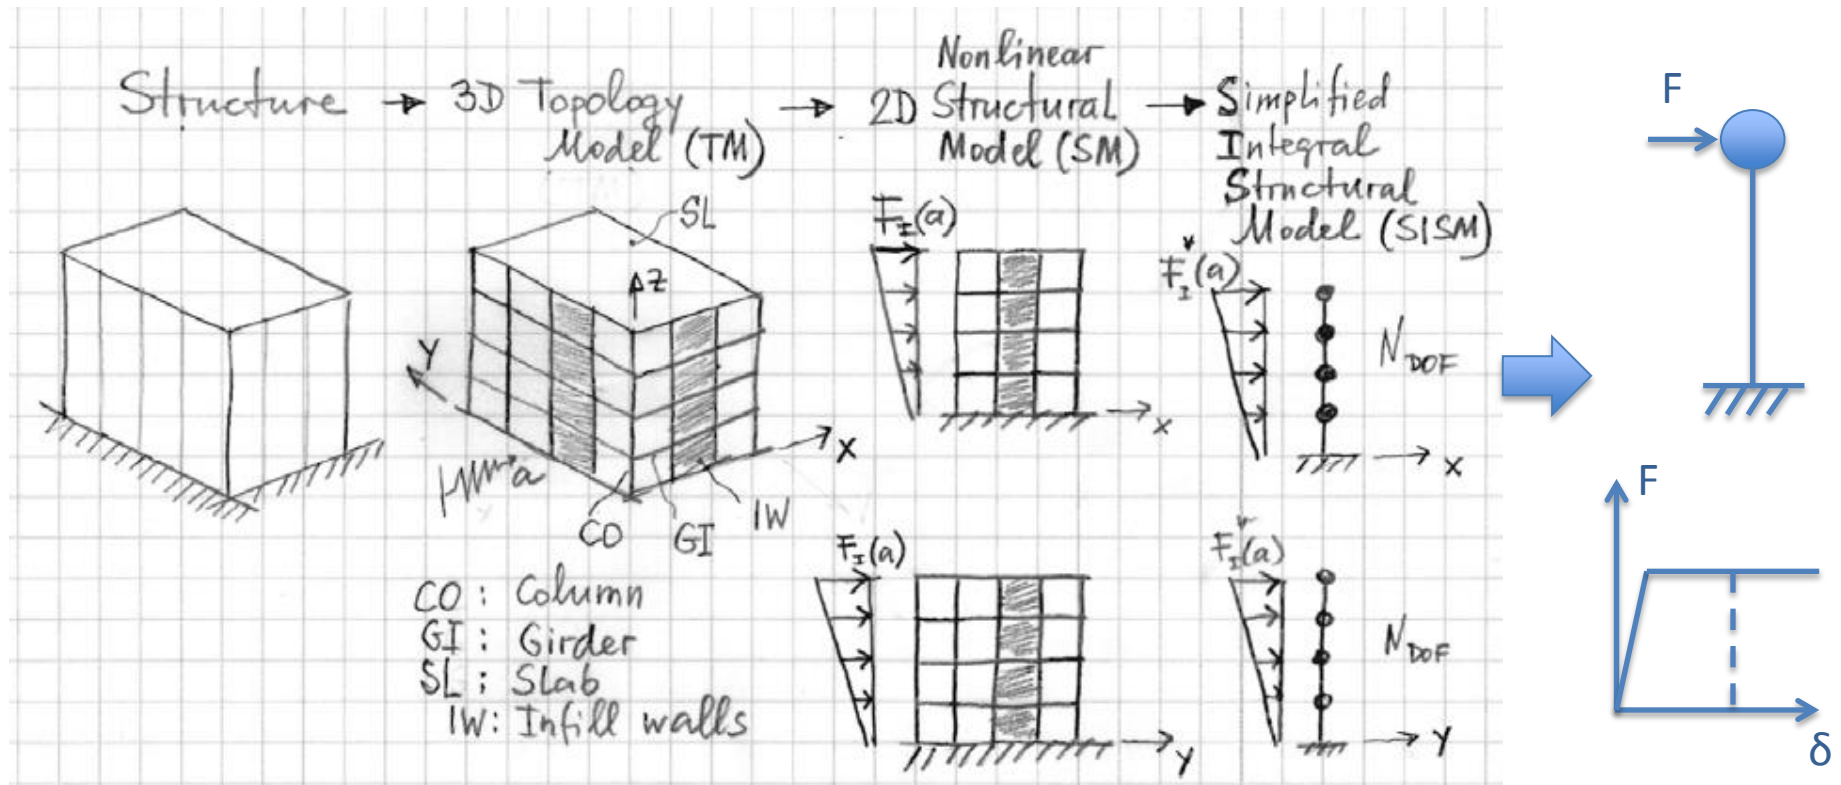 Structure → 3D Topology
Model (TM)
→ 2D Nonlinear
Structural
Model (SM)
→ Simplified
Integral
Structural
Model (SISM)
F
SL
Z
Y
X
a
CO
GI
IW
F_I(a)
X
F*_I(a)
N_DOF
X
CO: Column
GI: Girder
SL: Slab
IW: Infill walls
F_I(a)
Y
F*_I(a)
N_DOF
Y
F
δ